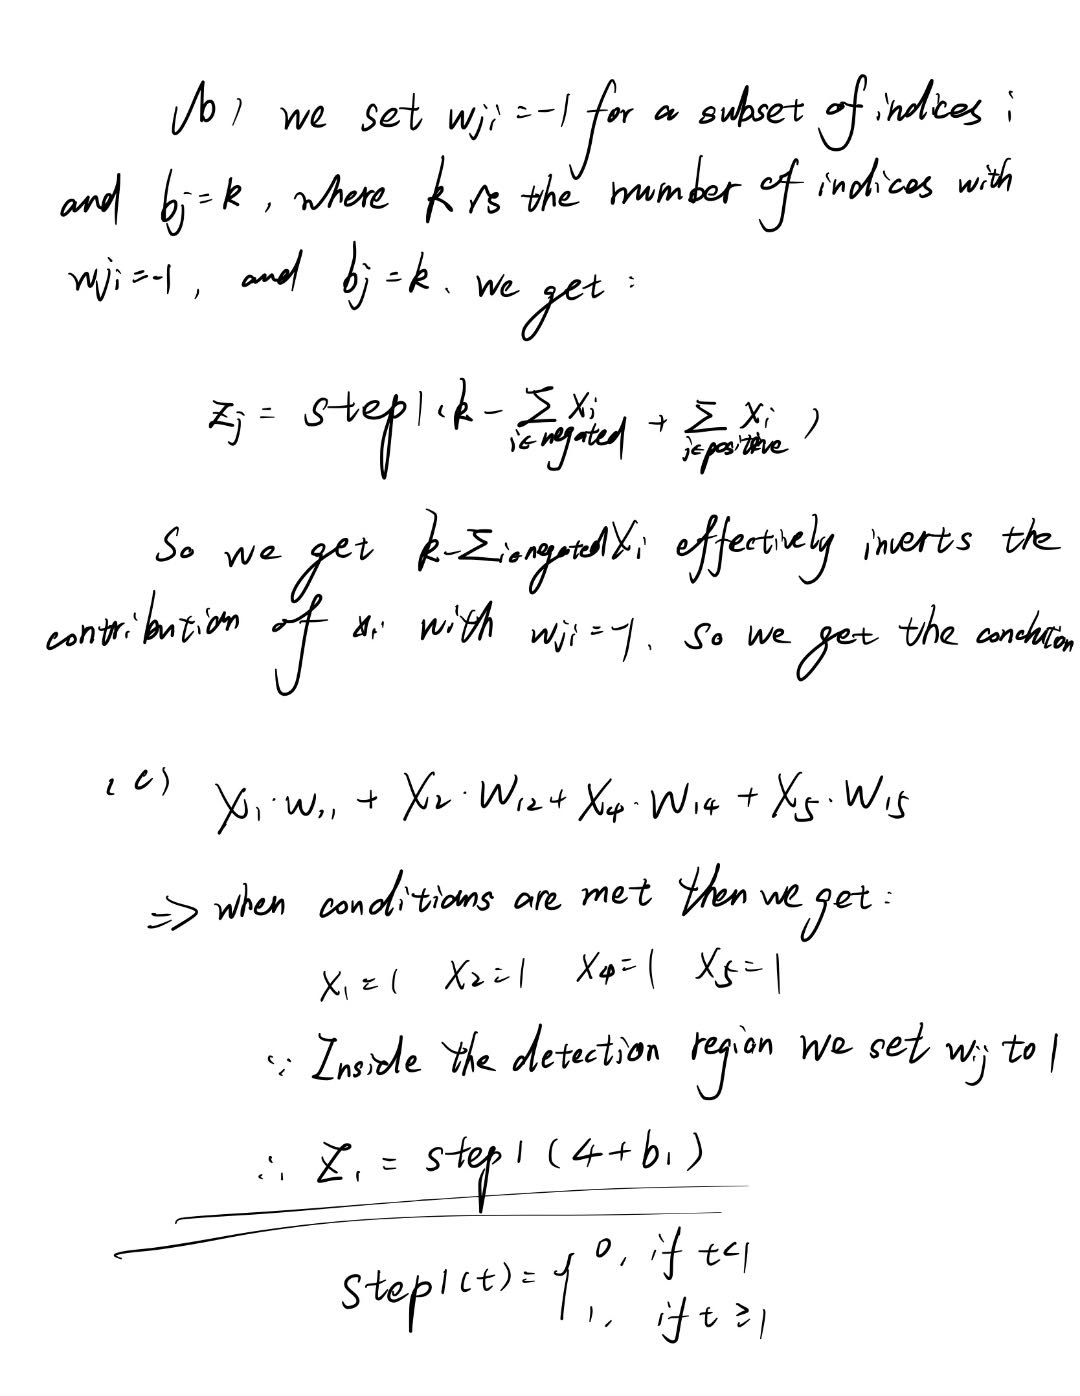 (b) we set wji = -1 for a subset of indices i
and bj = k, where k is the number of indices with
wji = -1, and bj = k. we get:
zj = step1(k - Σ i∈negated xi + Σ i∈positive xi)
So we get k - Σi∈negated xi effectively inverts the
contribution of xi with wji = -1. so we get the conclution
(c) X1·W11 + X2·W12 + X4·W14 + X5·W15
=> when conditions are met then we get:
X1 = 1 X2 = 1 X4 = 1 X5 = 1
∵ Inside the detection region we set wij to 1
∴ Z1 = step1(4 + b1)
step1(t) = { 0, if t<1
1, if t ≥ 1